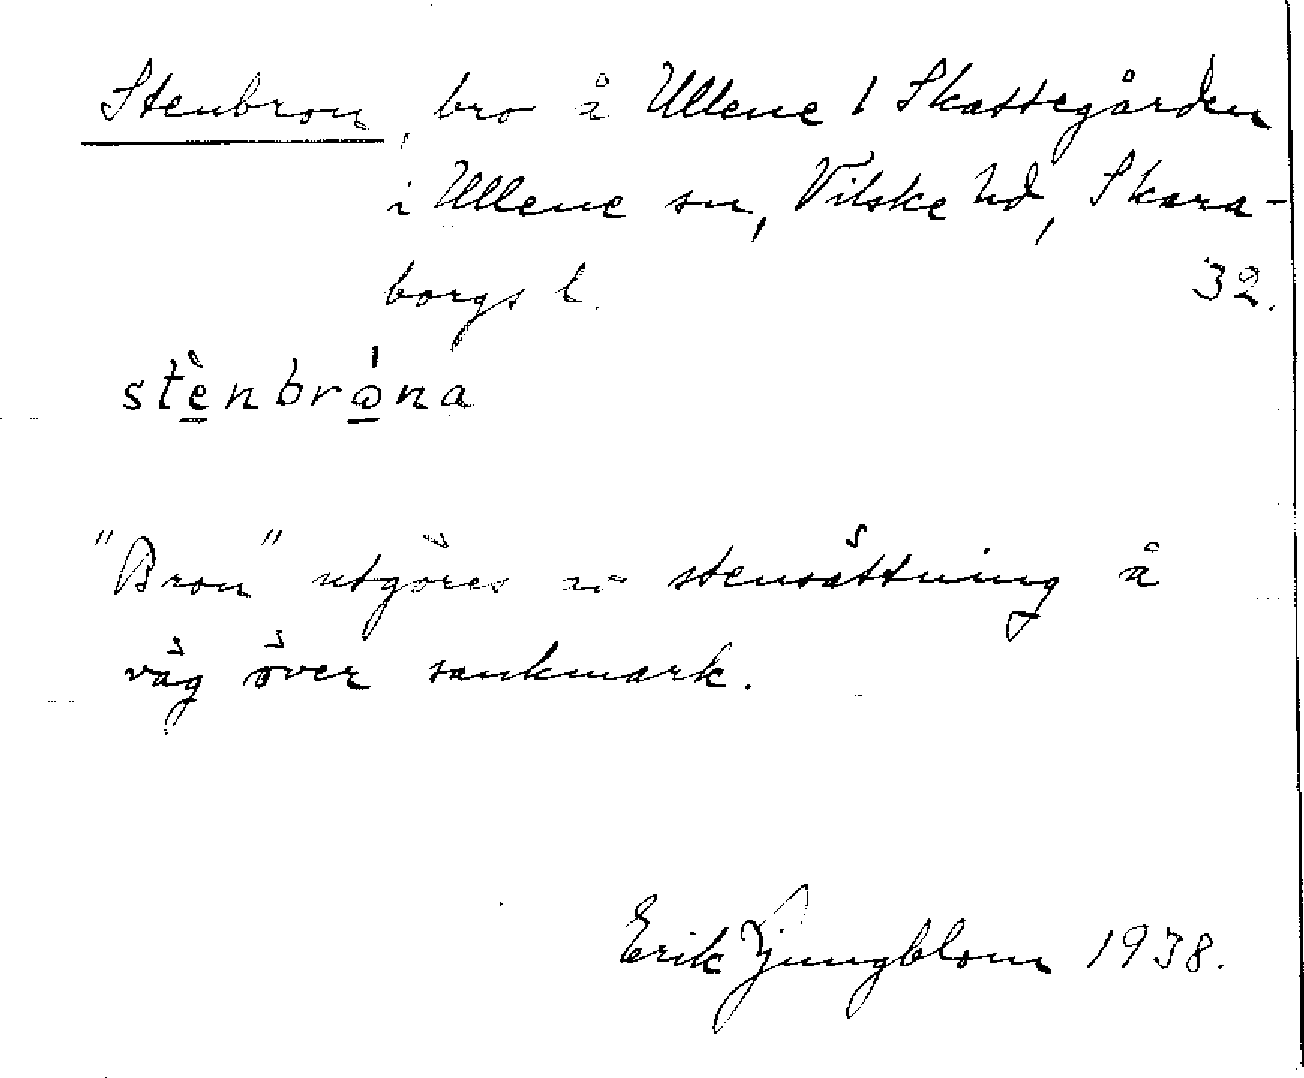 Stenbron, bro å Ullene 1 Skattegården
i Ullene sn, Vilske hd, Skara-
borgs l. 32.
stènbróna
"Bron" utgöres av stensättning å
väg över sankmark.
Erik Ljungblom 1938.